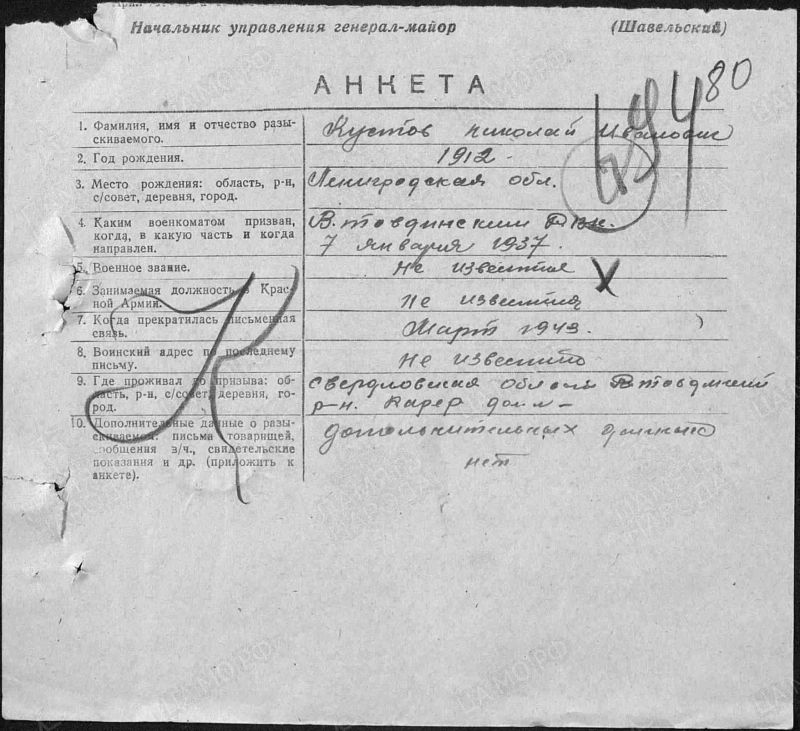 Начальник управления генерал-майор (Шавельский)
АНКЕТА
80
1. Фамилия, имя и отчество разы-
скиваемого.
Кустов Николай Иванович
2. Год рождения.
1912.
3. Место рождения: область, р-н,
с/совет, деревня, город.
Ленигродская обл.
4. Каким военкоматом призван,
когда, в какую часть и когда
направлен.
В. товдинским Рвк.
7 января 1937.
5. Военное звание.
Не известия
6. Занимаемая должность в Крас-
ной Армии.
Не известно
7. Когда прекратилась письменная
связь.
Март 1943.
8. Воинский адрес по последнему
письму.
Не известно
9. Где проживал до призыва: об-
ласть, р-н, с/совет, деревня, го-
род.
Свердловская область
р-н.
10. Дополнительные данные о разы-
скиваемом: письма товарищей,
сообщения в/ч., свидетельские
показания и др. (приложить к
анкете).
дополнительных данных
нет